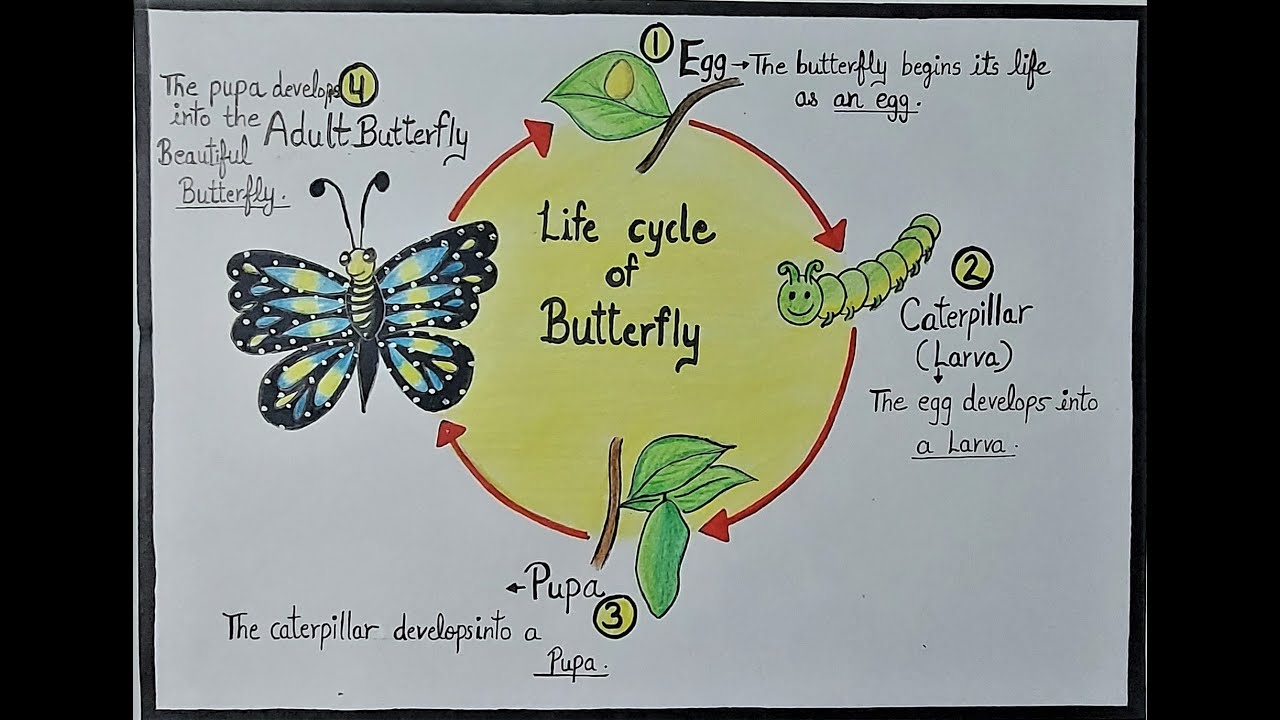 Life cycle
of
Butterfly
1
Egg → The butterfly begins its life
as an egg.
2
Caterpillar
(Larva)
↓
The egg develops into
a Larva.
3
← Pupa
The caterpillar develops into a
Pupa.
4
Adult Butterfly
The pupa develops
into the
Beautiful
Butterfly.